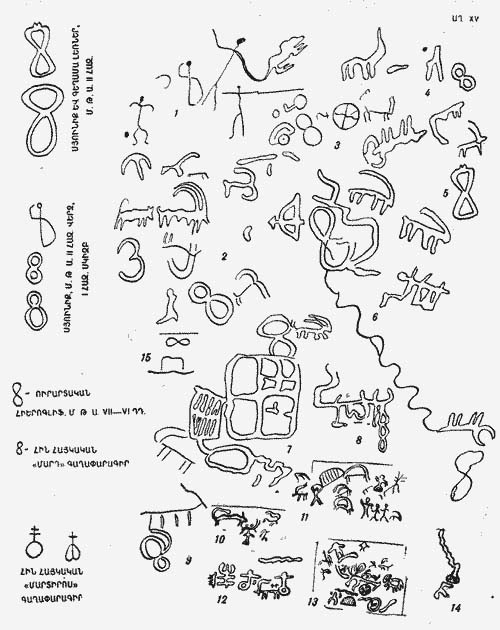 ԱՂ XV
ՍՅՈՒՆԻՔ ԵՎ ԳԵՂԱՄԱ ԼԵՌՆԵՐ,
Մ. Թ. Ա. II ՀԱԶ.
1
4
3
5
ՍՅՈՒՆԻՔ, Մ. Թ. Ա. II ՀԱԶ. ՎԵՐՋ,
I ՀԱԶ. ՍԿԻԶԲ
2
6
15
- ՈՒՐԱՐՏԱԿԱՆ
ՀԻԵՐՈԳԼԻՖ. Մ. Թ. Ա. VII—VI ԴԴ.
7
8
- ՀԻՆ ՀԱՅԿԱԿԱՆ
«ՄԱՐԴ» ԳԱՂԱՓԱՐԱԳԻՐ
11
10
9
ՀԻՆ ՀԱՅԿԱԿԱՆ
«ՄԱՐՏԻՐՈՍ»
ԳԱՂԱՓԱՐԱԳԻՐ
12
13
14